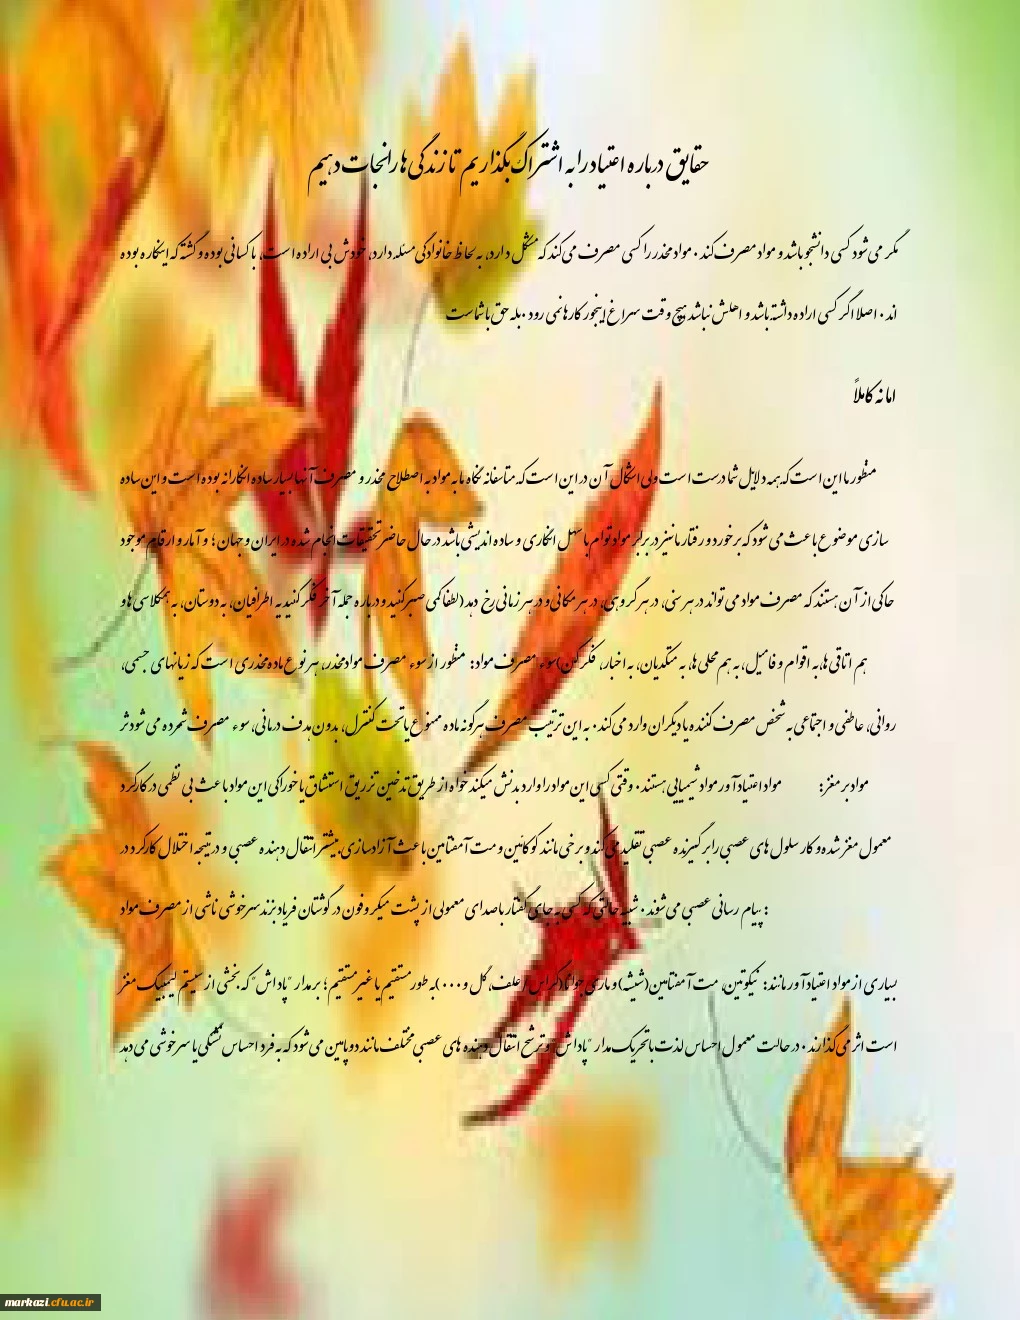 حقایق درباره اعتیاد را به اشتراک بگذاریم تا زندگی ها را نجات دهیم
مگر می شود کسی دانشجو باشد و مواد مصرف کند. مواد مخدر را کسی مصرف می کند که مشکل دارد، به لحاظ خانوادگی مسئله دارد، خودش بی اراده است، با کسانی بوده و گشته که اینکاره بوده
اند. اصلا اگر کسی اراده داشته باشد و اهلش نباشد هیچ وقت سراغ اینجور کارها نمی رود. بله حق با شماست
اما نه کاملاً
منظور ما این است که همه دلایل شما درست است ولی اشکال آن در این است که متاسفانه نگاه ما به مواد به اصطلاح مخدر و مصرف آنها بسیار ساده انگارانه بوده است و این ساده
سازی موضوع باعث می شود که برخورد و رفتار ما نیز در برابر مواد توام با سهل انگاری و ساده اندیشی باشد در حال حاضر تحقیقات انجام شده در ایران و جهان؛ و آمار و ارقام موجود
حاکی از آن هستند که مصرف مواد می تواند در هر سنی، در هر گروهی، در هر مکانی و در هر زمانی رخ دهد (لطفا کمی صبر کنید و درباره جمله آخر فکر کنید به اطرافیان، به دوستان، به همکلاسی ها و
هم اتاقی ها، به اقوام و فامیل، به هم محلی ها، به متکدیان، به اخبار، فکر کن) سوء مصرف مواد: منظور از سوء مصرف مواد مخدر، هر نوع ماده مخدری است که زیانهای جسمی،
روانی، عاطفی و اجتماعی به شخص مصرف کننده یا دیگران وارد می کند. به این ترتیب مصرف هرگونه ماده ممنوع یا تحت کنترل، بدون هدف درمانی، سوء مصرف شمرده می شود
مواد بر مغز: مواد اعتیادآور مواد شیمیایی هستند. وقتی کسی این مواد را وارد بدنش میکند خواه از طریق تدخین تزریق استنشاق یا خوراکی این مواد باعث بی نظمی در کارکرد
معمول مغز شده و کار سلول های عصبی را بر گیرنده عصبی تقلید می کند و برخی مانند کوکائین و مت آمفتامین باعث آزادسازی بیشتر انتقال دهنده عصبی و در نتیجه اختلال کارکرد در
پیام رسانی عصبی می شوند. شبیه حالتی که کسی به جای گفتار با صدای معمولی از پشت میکروفون در گوشتان فریاد بزند سرخوشی ناشی از مصرف مواد :
بسیاری از مواد اعتیادآور مانند: نیکوتین، مت آمفتامین (شیشه) و ماری جوانا (گراس، علف، گل و ...) به طور مستقیم یا غیر مستقیم؛ بر مدار "پاداش" که بخشی از سیستم لیمبیک مغز
است اثر می گذارند. در حالت معمول احساس لذت با تحریک مدار "پاداش" و ترشح انتقال دهنده های عصبی مختلف مانند دوپامین می شود که به فرد احساس نشئگی یا سرخوشی می دهد
markazi.cfu.ac.ir